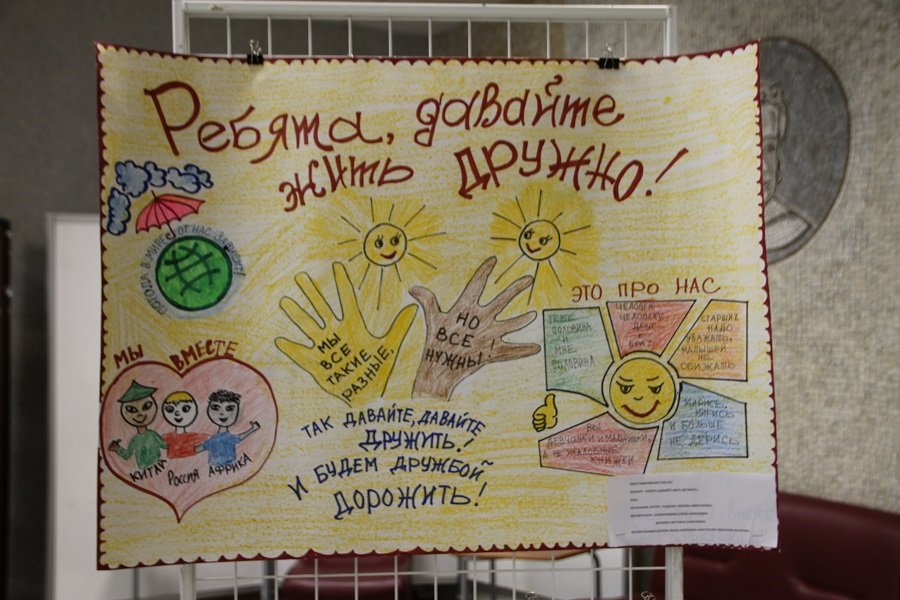 Ребята, давайте
жить ДРУЖНО!
ПОГОДА В МИРЕ ОТ НАС ЗАВИСИТ!
МЫ ВМЕСТЕ
КИТАЙ РОССИЯ АФРИКА
МЫ
ВСЕ
ТАКИЕ
РАЗНЫЕ,
НО
ВСЕ
НУЖНЫ!
ТАК ДАВАЙТЕ, ДАВАЙТЕ
ДРУЖИТЬ!
И БУДЕМ ДРУЖБОЙ
ДОРОЖИТЬ!
ЭТО ПРО НАС
ТЕБЕ
ПОЛОВИНА
И
МНЕ
ПОЛОВИНА
ЧЕЛОВЕК
ЧЕЛОВЕКУ
ДРУГ
И
БРАТ
СТАРШИХ
НАДО
УВАЖАТЬ,
МАЛЫШЕЙ
НЕ
ОБИЖАТЬ
МИРИСЬ,
МИРИСЬ
И БОЛЬШЕ
НЕ ДЕРИСЬ
ВЫ
ДЕВЧОНКИ И МАЛЬЧИШКИ,
А НЕ
КНИЖКИ